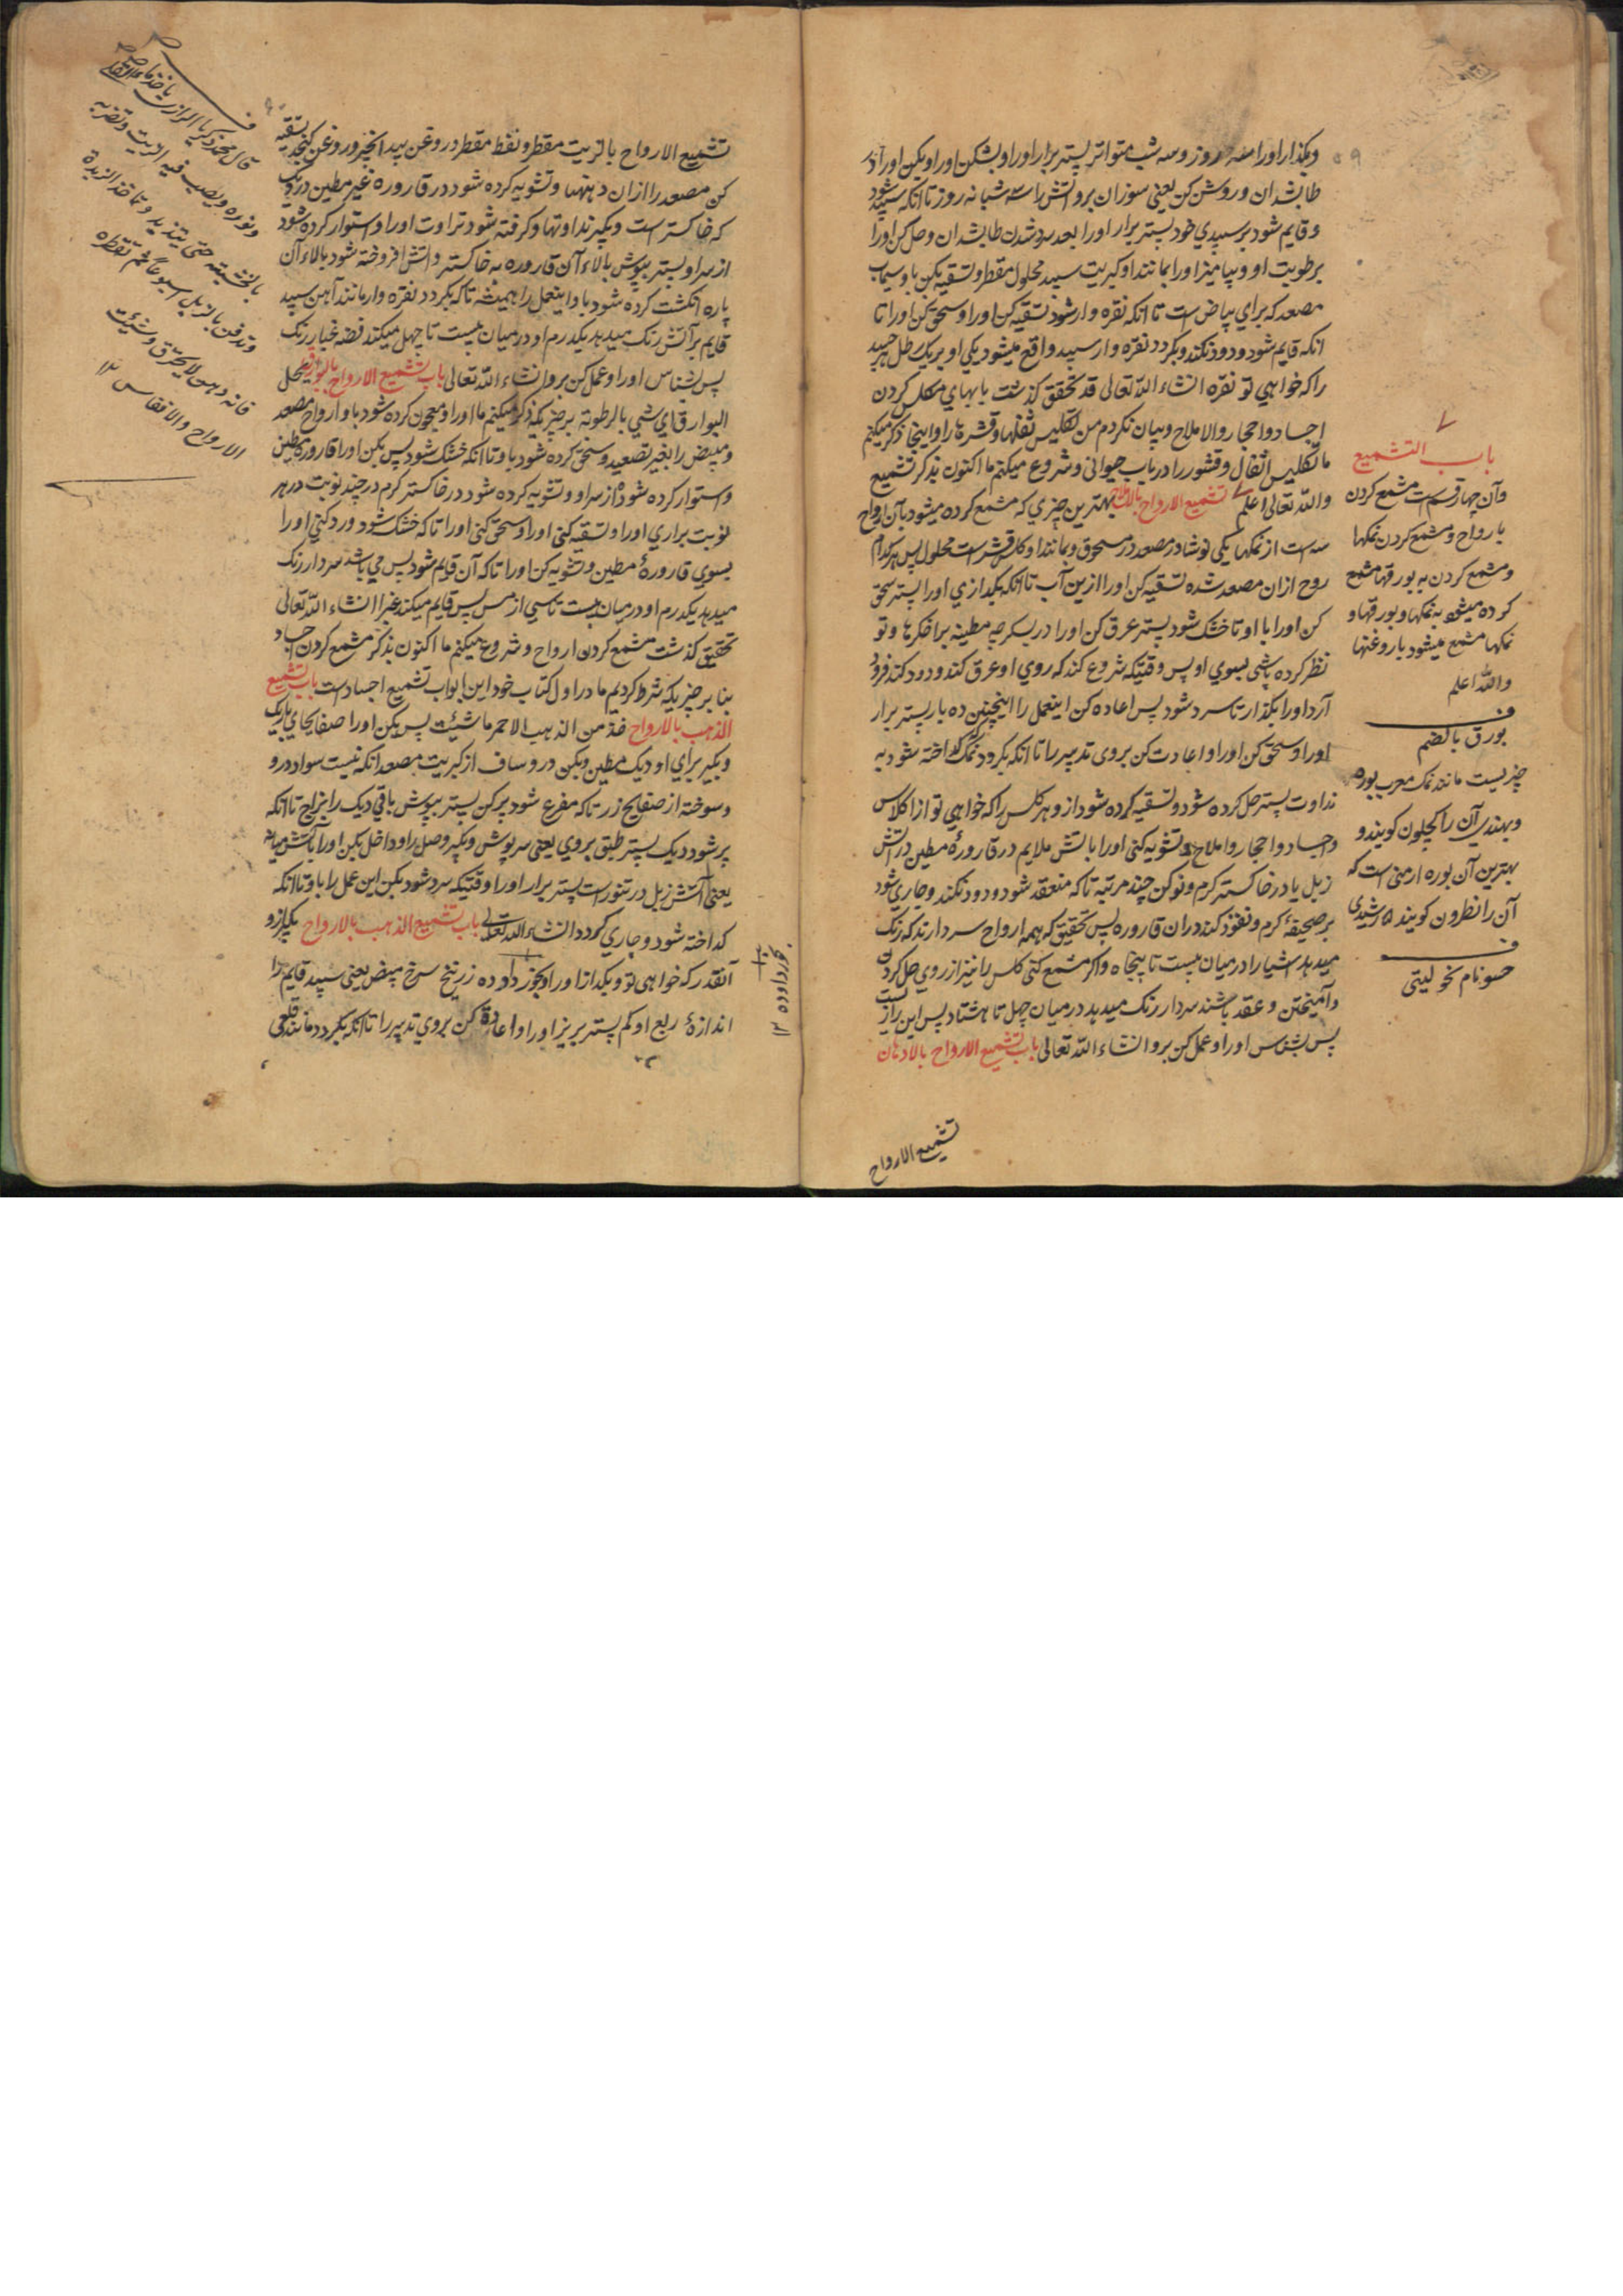 وبگذار اورا سه روز وسه شب متواتر پستر برار اورا وبشکن اورا وبکن اورا در
طابشدان وروشن کن یعنی سوزان برو آتش را سه شبانه روز تا انکه سپید شود
وقایم شود برسپیدي خود پستر برار اورا بعد سرد شدن طابشدان وحل کن اورا
برطوبت او وبیامیز اورا بمانند او کبریت سپید محلول مقطر وتسقیه کن باو سیماب
مصعد که براي بیاض است تا انکه نقره وار شود تسقیه کن اورا وسحق کن اورا تا
انکه قایم شود ودود نکند وبگردد نقره وار سپید واقع میشود یکی او بر یک رطل هر جسد
را که خواهي تو نقره انشاء الله تعالی قد تحقق گذشت بابهاي مکلس کردن
اجساد واحجار والاملاح وبیان نکردم من تکلیس ثفلها وقشرها را واینجا ذکر میکنم
ما تکلیس اثفال وقشور را در باب حیوانی وشروع میکنم ما اکنون بذکر تشمیع
والله تعالی اعلم تشمیع الارواح بالاملاح بهترین چیزي که مشمع کرده میشود بآن ارواح
سه است از نمکها یکی نوشادر مصعد در مسحوق وبمانند او کلس قشر است محلول پس هر کدام
روح ازان مصعد شده تسقیه کن اورا ازین آب تا انکه بگدازي اورا پستر سحق
کن اورا با او تا خشک شود پستر عرق کن اورا در سکرجه مطینه برا خگرها وتو
نظر کرده باشی بسوي او پس وقتیکه شروع کند که روي او عرق کند ودود کند فرود
آر د اورا بگذار تا سرد شود پس اعاده کن اینعمل را اینچنین ده بار پستر برار
اورا وسحق کن اورا واعادت کن بروی تدبیر را تا انکه بگردد نمک گداخته شود به
نداوت پستر حل کرده شود وتسقیه کرده شود ازو هر کلس را که خواهي تو از اکلاس
واجساد واحجار واملاح وتشویه کنی اورا باتش ملایم در قارورهٔ مطین در آتش
زبل یا در خاکستر گرم ونو کن چند مرتبه تا که منعقد شود ودود نکند وجاري شود
بر صحیفهٔ گرم ونفوذ کند دران قاروره پس تحقیق که همه ارواح سردارند که رنگ
میدهد اشیا را درمیان بیست تا پنجاه واگر مشمع کنی کلس را نیز از روي حل کردن
وآمیختن وعقد باشند سردار رنگ میدهد درمیان چهل تا هشتاد پس این راز است
پس بشناس اورا وعمل کن برو انشاء الله تعالی باب تشمیع الارواح بالادهان
تشمیع الارواح
باب التشمیع
وآن چهار قسم است مشمع کردن
بارواح ومشمع کردن نمکها
ومشمع کردن به بورقها مشمع
کرده میشود به نمکها وبورقها و
نمکها مشمع میشود باروغنها
والله اعلم
ف
بورق بالضم
چیزیست مانند نمک معرب بوره
وبهندي آن را کچلون گویند و
بهترین آن بوره ارمنی است که
آن را نطرون گویند ۵ رشیدي
ف
حسو نام نخو لیتی
تشمیع الارواح بالزیت مقطر ونفط مقطر در روغن بید انجیر وروغن کنجد تسقیه
کن مصعد را ازان دهنها وتشویه کرده شود در قاروره غیر مطین در دیگ
که خاکستر است وبگیرند اوتها وگرفته شود تراوت اورا واستوار کرده شود
از سر او پستر بپوش بالاء آن قاروره به خاکستر وآتش افروخته شود بالاء آن
پاره انگشت کرده شود باو اینعمل را همیشه تا که بگردد نقره وار مانند آهن سپید
قایم برآتش رنگ میدهد یکدرم او درمیان بیست تا چهل میکند فضه غبار رنگ
پس بشناس اورا وعمل کن برو انشاء الله تعالی باب تشمیع الارواح بالبوارق یحلی
البوارق اي شي بالرطوبة بر چیزیکه ذکر میکنم ما اورا ومعجون کرده شود باو ارواح مصعد
ومبیض را بغیر تصعید وسحق کرده شود باو تا انکه خشک شود پس بکن اورا قاروره مطین
واستوار کرده شود از سر او وتشویه کرده شود در خاکستر گرم در چند نوبت در هر
نوبت براري اورا وتسقیه کنی اورا وسحق کنی اورا تا که خشک شود ورد کني اورا
بسوي قارورهٔ مطین وتشویه کن اورا تا که آن قایم شود پس مي باشد سردار رنگ
میدهد یکدرم او درمیان بیست تا سي از مس پس قایم میکند غبرا انشاء الله تعالی
تحقیق گذشت مشمع کردن ارواح وشروع میکنم ما اکنون بذکر مشمع کردن اجساد
بنا بر چیزیکه شرط کردیم ما در اول کتاب خود این ابواب تشمیع اجساد است باب تشمیع
الذهب بالارواح خذ من الذهب الاحمر ماشئت پس بکن اورا صفایحاي باریک
وبگیر براي او دیگ مطین وبکن درو ساف از کبریت مصعد انکه نیست سواد درو
وسوخته از صفایح زر تا که مفرغ شود پر کن پستر بپوش باقي دیگ را بزاج تا انکه
پر شود دیگ پستر طبق بروي یعنی سرپوش وبگیر وصل را وداخل بکن اورا باتش میانه
یعنی آتش زبل در تنور است پستر برار اورا وقتیکه سرد شود بکن این عمل را باو تا انکه
گداخته شود وجاري گردد انشاء الله تعالی باب تشمیع الذهب بالارواح بگیر ازو
آنقدر که خواهی تو وبگداز اورا وبخور داود ده زرنیخ سرخ مبیض یعنی سپید قایم را
اندازهٔ ربع او کم پستر بریز اورا واعادة کن بروي تدبیر را تا انکه بگردد مانند قلعی
بخورداوده ۱۲
ف
قال محمد زکریا الرازي یاخذ ماء القلی
ونوره ویصب فیه الزیت وتضربه
بالخشبته حتی یتذبد وتاخذ الزبدة
وتدفن بالزبل اسبوعا ثم تقطره
فانه دهن لایحترق وشئت
الارواح والانفاس ۱۲